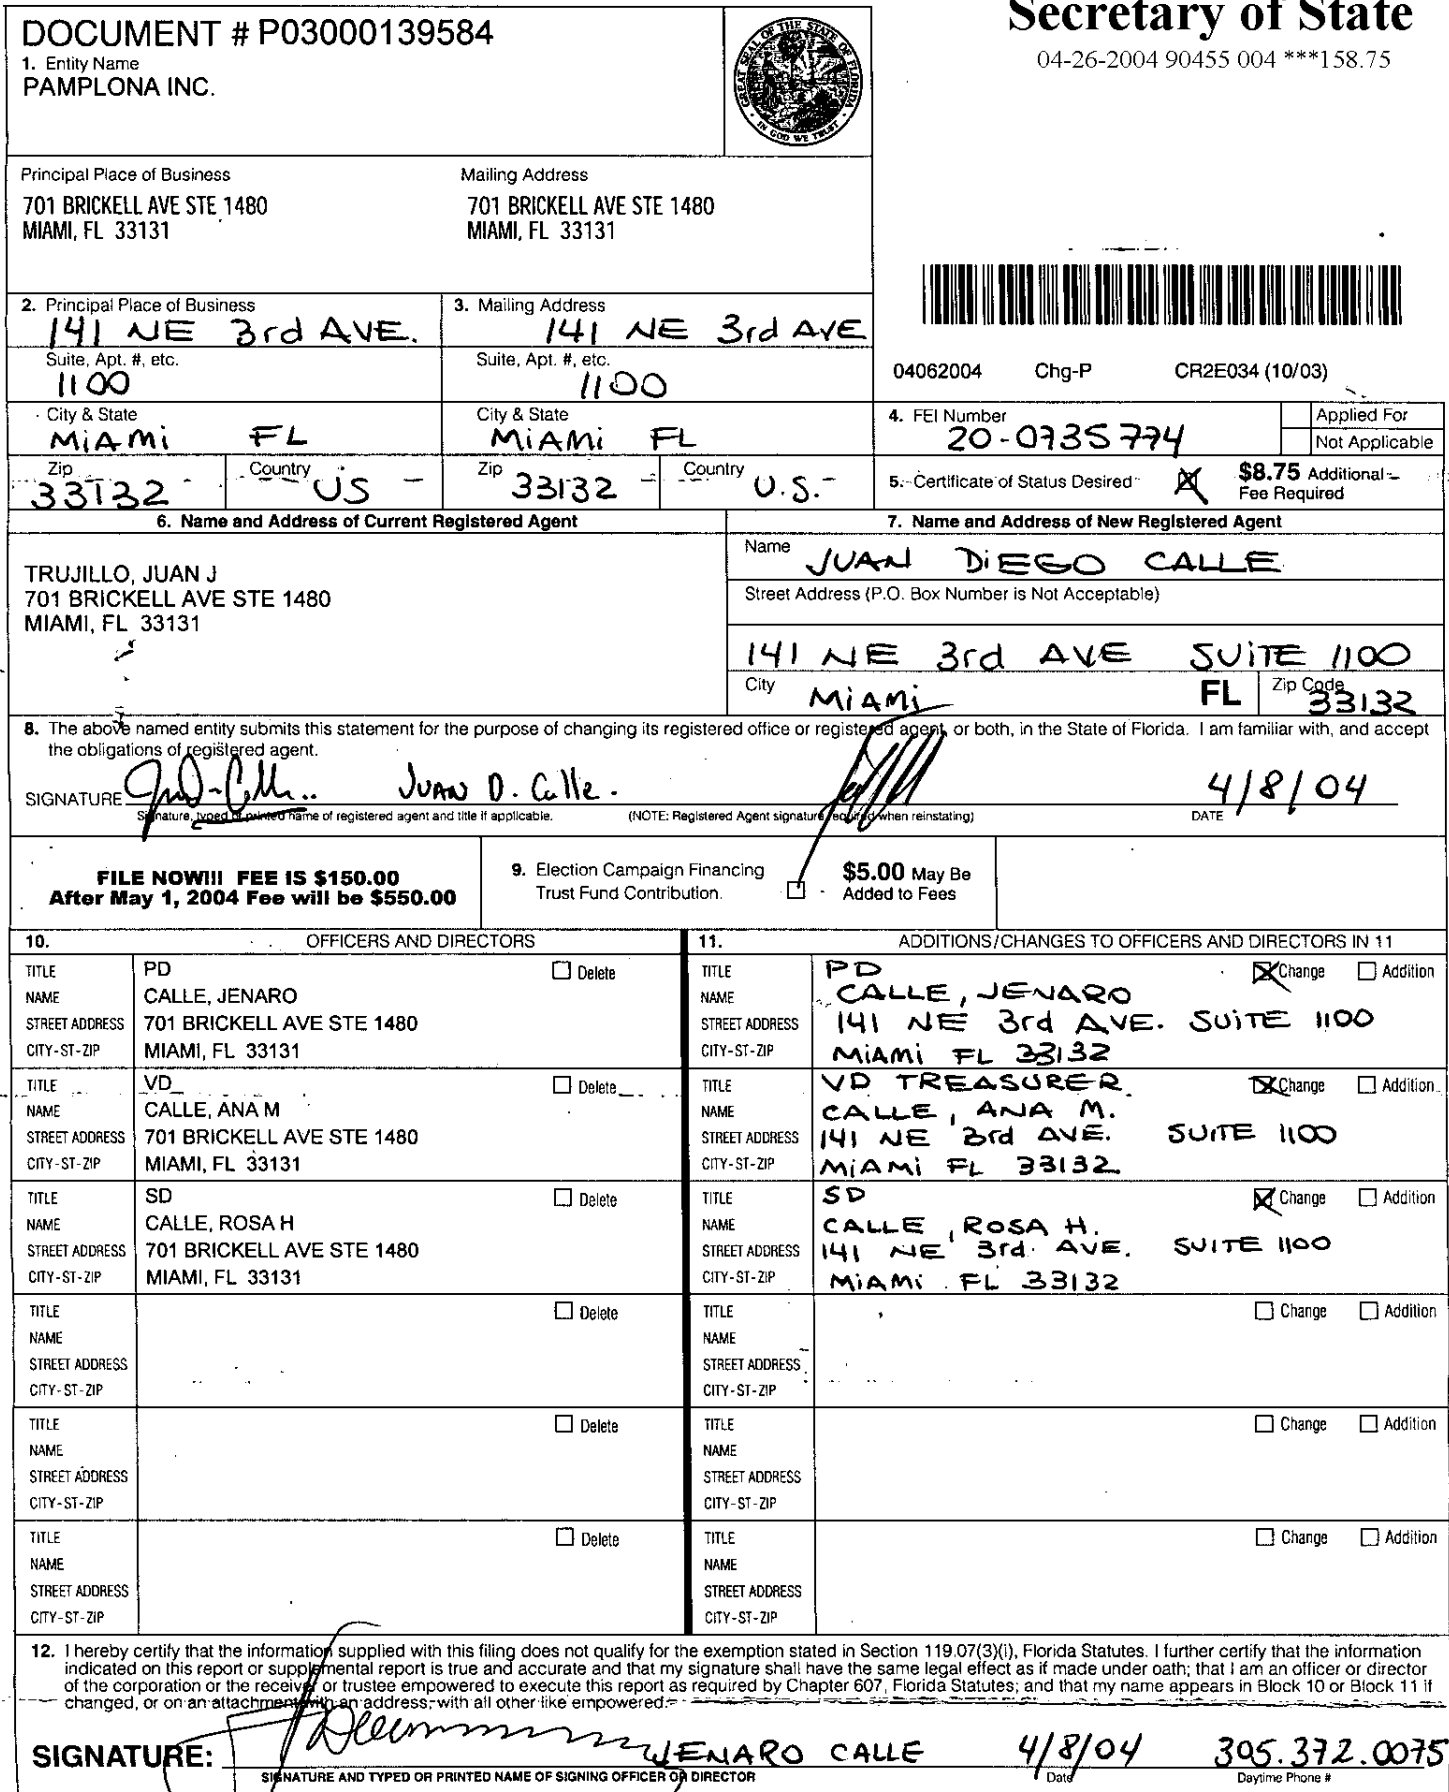 Secretary of State
04-26-2004 90455 004 ***158.75
DOCUMENT # P03000139584
1. Entity Name
PAMPLONA INC.
GREAT SEAL OF THE STATE OF FLORIDA
IN GOD WE TRUST
Principal Place of Business
701 BRICKELL AVE STE 1480
MIAMI, FL 33131
Mailing Address
701 BRICKELL AVE STE 1480
MIAMI, FL 33131
2. Principal Place of Business
141 NE 3rd AVE.
Suite, Apt. #, etc.
1100
City & State
MiAMi FL
Zip 33132 Country US
3. Mailing Address
141 NE 3rd AVE
Suite, Apt. #, etc.
1100
City & State
MiAMi FL
Zip 33132 Country U.S.
04062004 Chg-P CR2E034 (10/03)
4. FEI Number
20-0735774
Applied For
Not Applicable
5. Certificate of Status Desired $8.75 Additional
Fee Required
6. Name and Address of Current Registered Agent
TRUJILLO, JUAN J
701 BRICKELL AVE STE 1480
MIAMI, FL 33131
7. Name and Address of New Registered Agent
Name JUAN DiEGO CALLE
Street Address (P.O. Box Number is Not Acceptable)
141 NE 3rd AVE SUiTE 1100
City MiAMi FL Zip Code 33132
8. The above named entity submits this statement for the purpose of changing its registered office or registered agent, or both, in the State of Florida. I am familiar with, and accept
the obligations of registered agent.
SIGNATURE JUAN D. Calle. 4/8/04
Signature, typed or printed name of registered agent and title if applicable. (NOTE: Registered Agent signature required when reinstating) DATE
FILE NOW!!! FEE IS $150.00
After May 1, 2004 Fee will be $550.00
9. Election Campaign Financing
Trust Fund Contribution.
$5.00 May Be
Added to Fees
10. OFFICERS AND DIRECTORS
TITLE PD Delete
NAME CALLE, JENARO
STREET ADDRESS 701 BRICKELL AVE STE 1480
CITY-ST-ZIP MIAMI, FL 33131
TITLE VD Delete
NAME CALLE, ANA M
STREET ADDRESS 701 BRICKELL AVE STE 1480
CITY-ST-ZIP MIAMI, FL 33131
TITLE SD Delete
NAME CALLE, ROSA H
STREET ADDRESS 701 BRICKELL AVE STE 1480
CITY-ST-ZIP MIAMI, FL 33131
TITLE Delete
NAME
STREET ADDRESS
CITY-ST-ZIP
TITLE Delete
NAME
STREET ADDRESS
CITY-ST-ZIP
TITLE Delete
NAME
STREET ADDRESS
CITY-ST-ZIP
11. ADDITIONS/CHANGES TO OFFICERS AND DIRECTORS IN 11
TITLE PD Change Addition
NAME CALLE, JENARO
STREET ADDRESS 141 NE 3rd AVE. SUiTE 1100
CITY-ST-ZIP MiAMi FL 33132
TITLE VD TREASURER Change Addition
NAME CALLE, ANA M.
STREET ADDRESS 141 NE 3rd AVE. SUITE 1100
CITY-ST-ZIP MiAMi FL 33132
TITLE SD Change Addition
NAME CALLE, ROSA H.
STREET ADDRESS 141 NE 3rd. AVE. SUITE 1100
CITY-ST-ZIP MiAMi FL 33132
TITLE Change Addition
NAME
STREET ADDRESS
CITY-ST-ZIP
TITLE Change Addition
NAME
STREET ADDRESS
CITY-ST-ZIP
TITLE Change Addition
NAME
STREET ADDRESS
CITY-ST-ZIP
12. I hereby certify that the information supplied with this filing does not qualify for the exemption stated in Section 119.07(3)(i), Florida Statutes. I further certify that the information
indicated on this report or supplemental report is true and accurate and that my signature shall have the same legal effect as if made under oath; that I am an officer or director
of the corporation or the receiver or trustee empowered to execute this report as required by Chapter 607, Florida Statutes; and that my name appears in Block 10 or Block 11 if
changed, or on an attachment with an address, with all other like empowered.
SIGNATURE: JENARO CALLE 4/8/04 305.372.0075
SIGNATURE AND TYPED OR PRINTED NAME OF SIGNING OFFICER OR DIRECTOR Date Daytime Phone #